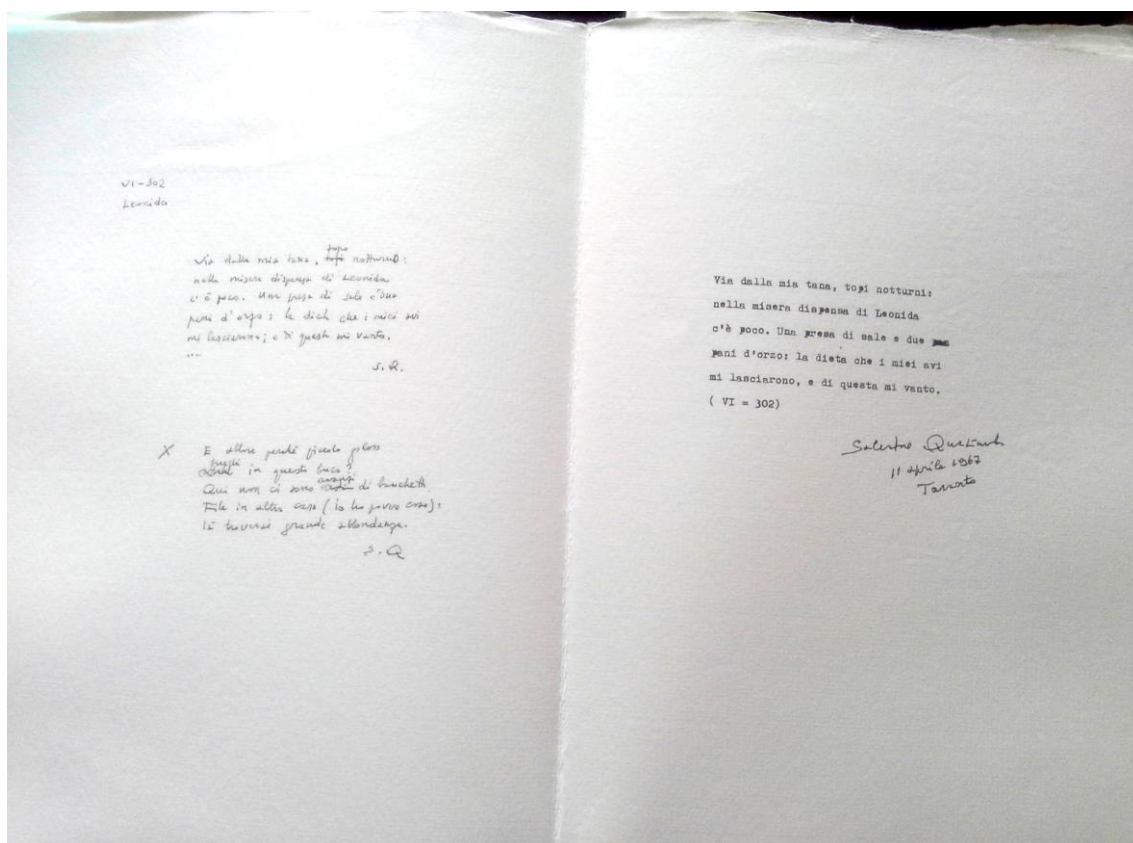 VI-302
Leonida
topo
Via dalla mia tana, topi notturno:
nella misera dispensa di Leonida
c'è poco. Una presa di sale e due
pani d'orzo: la dieta che i miei avi
mi lasciarono; e di questo mi vanto.
...
S. Q.
X E allora perché piccolo goloso
frughi
in questo buco?
avanzi
Qui non ci sono di banchetti
Fila in altre case (io ho povere cose):
là troverai grande abbondanza.
S. Q
Via dalla mia tana, topi notturni:
nella misera dispensa di Leonida
c'è poco. Una presa di sale e due
pani d'orzo: la dieta che i miei avi
mi lasciarono, e di questa mi vanto.
( VI = 302)
Salvatore Quasimodo
11 aprile 1967
Taranto